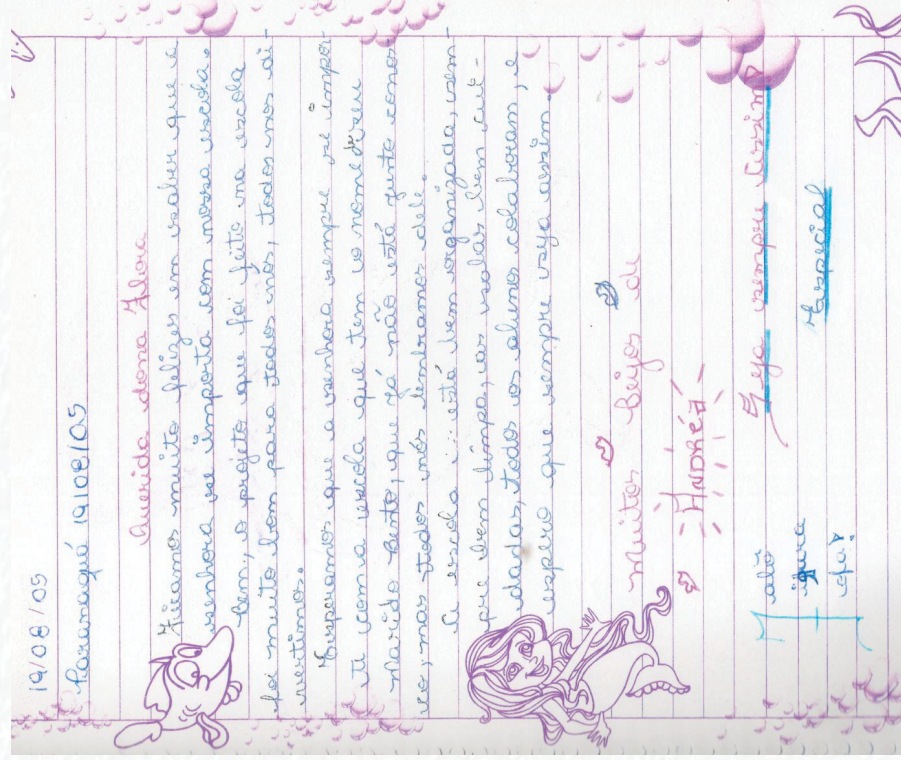 19/08/05
Paranaguá 19/08/05
Querida dona Flora
Ficamos muito felizes em saber que a
senhora se importa com nossa escola.
Bem, o projeto que foi feito na escola
foi muito bom para todos nós, todos nos di-
vertimos.
Esperamos que a senhora sempre se impor-
ti com a escola que tem o nome di seu
marido Bento, que já não está junto conos-
co, mas todos nós lembramos dele.
A escola está bem organizada, sem-
pre bem limpa, as salas bem cui-
dadas, todos os alunos colaboram, e
espero que sempre seja assim.
muitos Beijos de
ANDRÉA
Seja sempre Assim
Especial